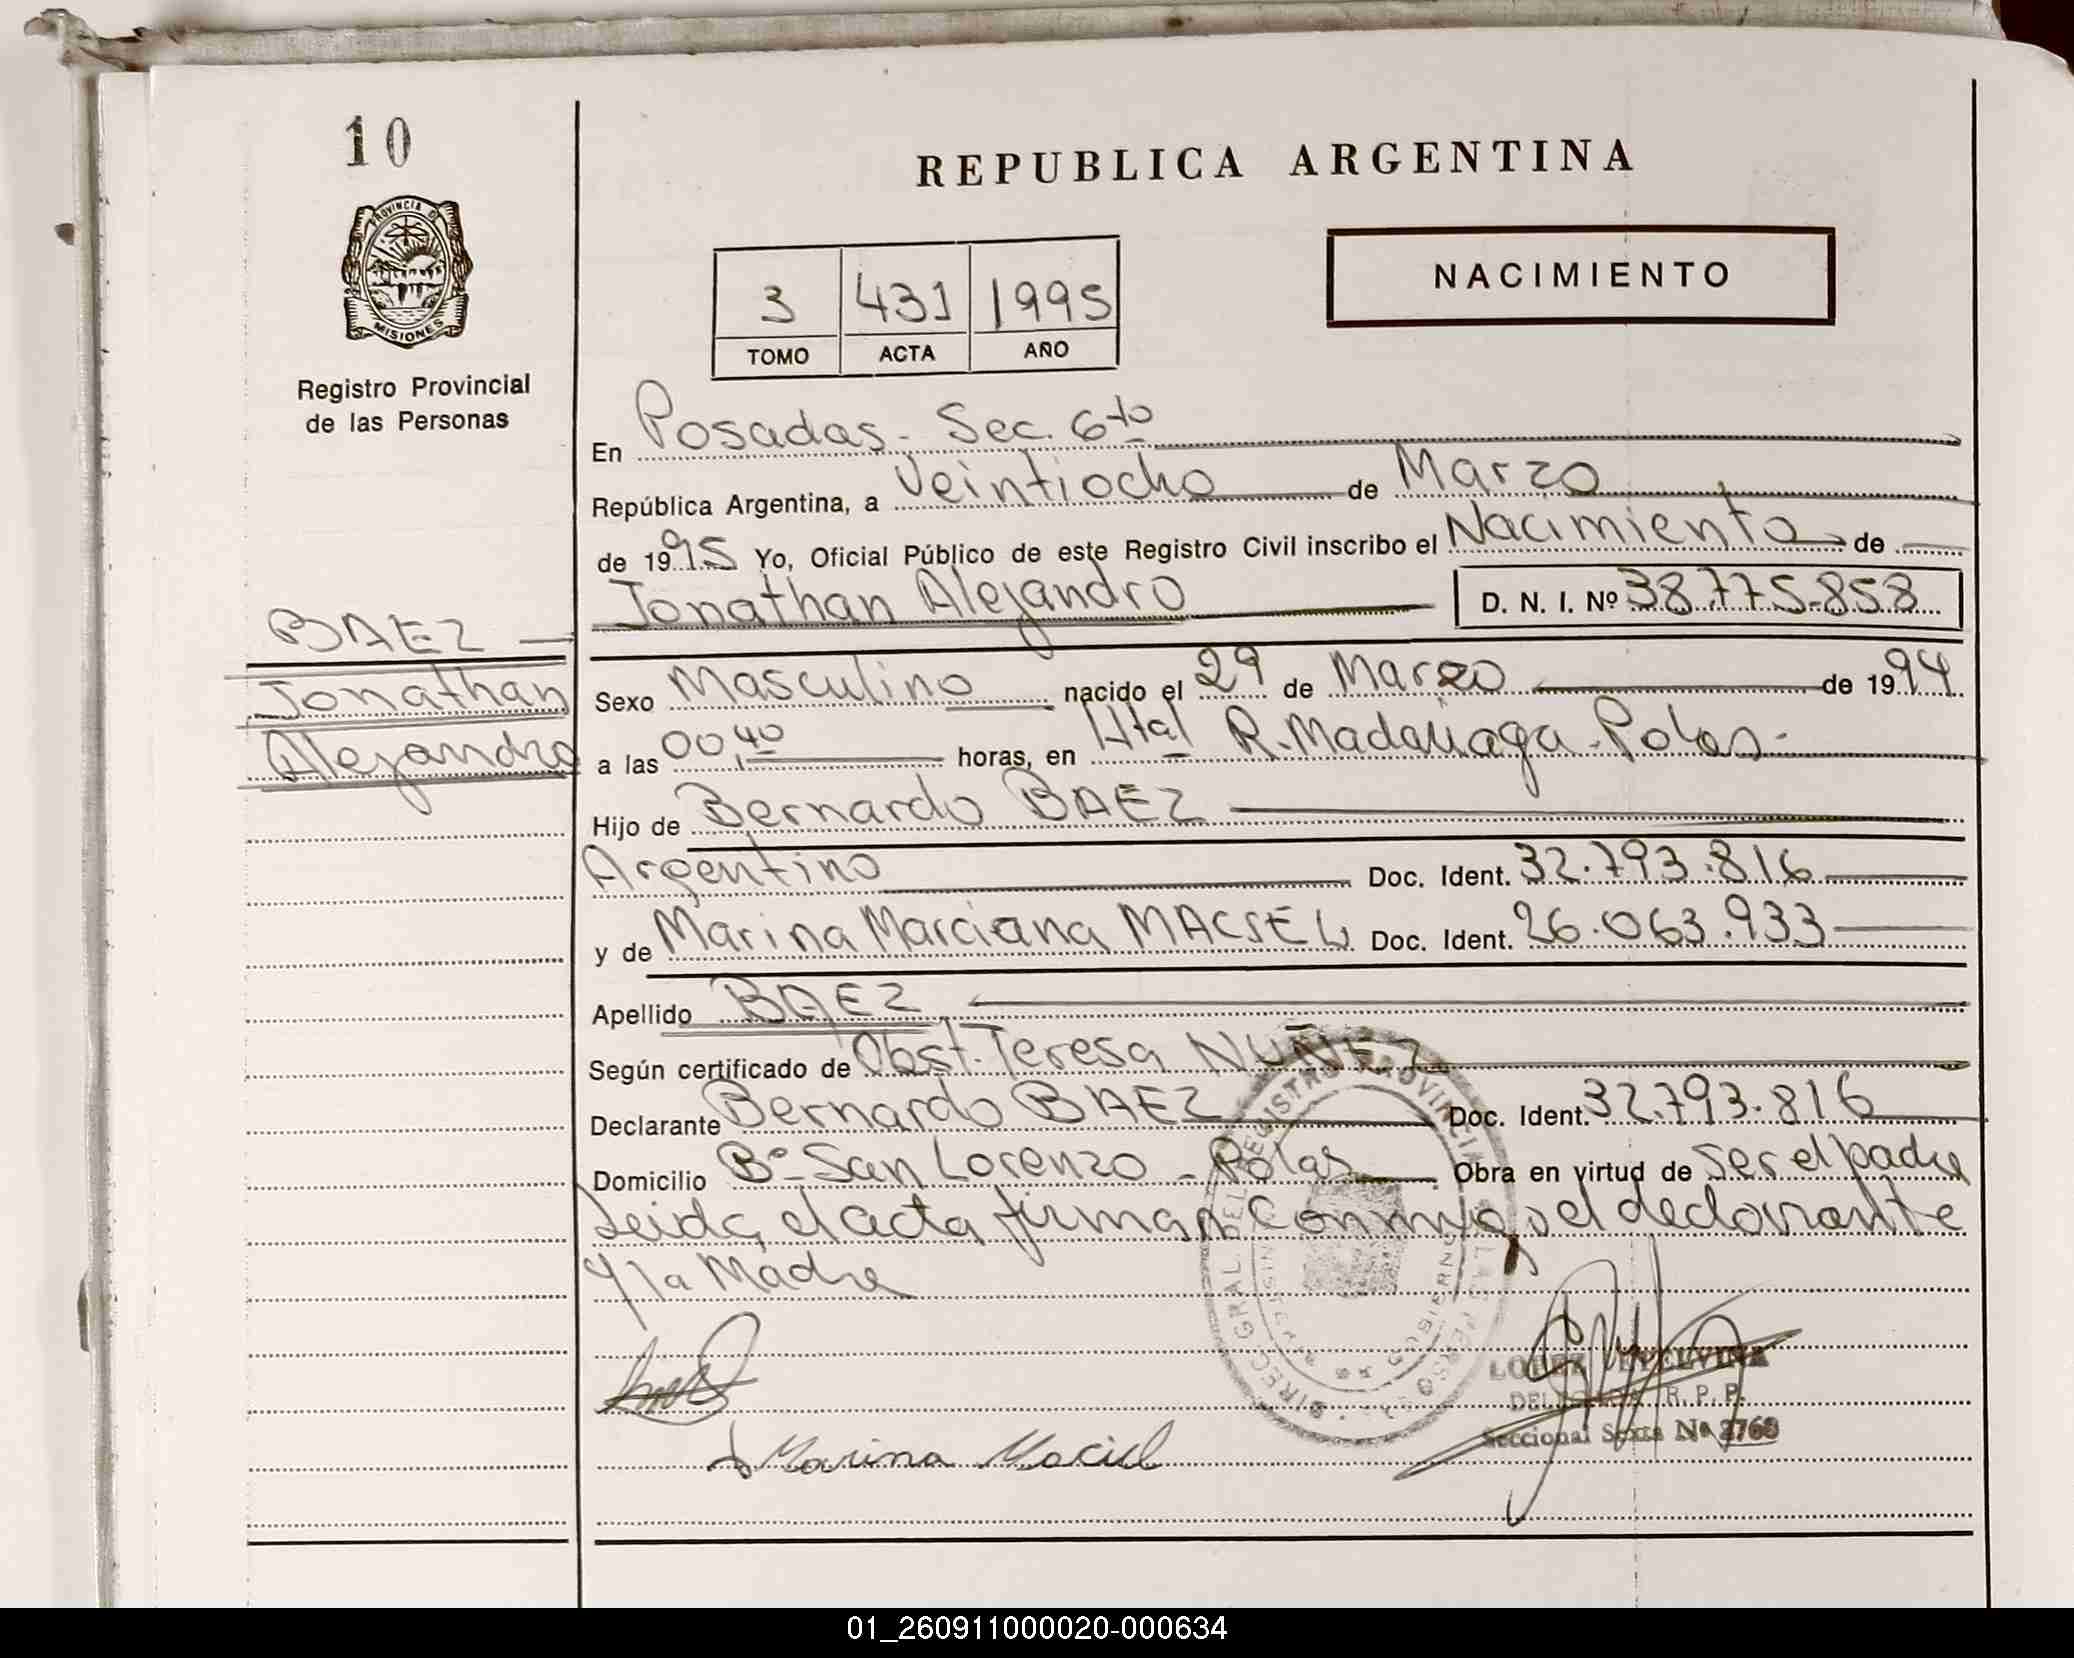 10
REPUBLICA ARGENTINA
NACIMIENTO
PROVINCIA DE
MISIONES
3 431 1995
TOMO ACTA AÑO
Registro Provincial
de las Personas
En Posadas - Sec. 6to
República Argentina, a Veintiocho de Marzo
de 1995 Yo, Oficial Público de este Registro Civil inscribo el Nacimiento de
Jonathan Alejandro D. N. I. Nº 38.775.858
BAEZ
Jonathan
Alejandro
Sexo Masculino nacido el 29 de Marzo de 1994
a las 00,40 horas, en Htal R. Madariaga - Pdas -
Hijo de Bernardo BAEZ
Argentino Doc. Ident. 32.793.816
y de Marina Marciana MACIEL Doc. Ident. 26.063.933
Apellido BAEZ
Según certificado de Obst. Teresa NUÑEZ
Declarante Bernardo BAEZ Doc. Ident. 32.793.816
Domicilio Bº San Lorenzo - Pdas Obra en virtud de ser el padre
Leida el acta firman conmigo el declarante
y la Madre
Marina Maciel
LOPEZ
R. P. P.
Seccional Sexta Nº 2760
01_260911000020-000634